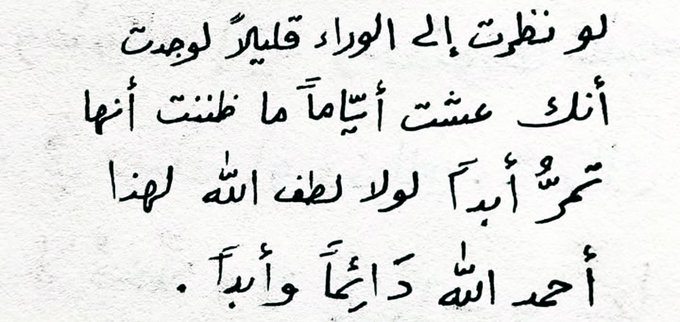 لو نظرت إلى الوراء قليلاً لوجدت
أنك عشت أيّاماً ما ظننت أنها
تمرُّ أبداً لولا لطف الله لهذا
أحمد الله دَائِماً وأبداً .